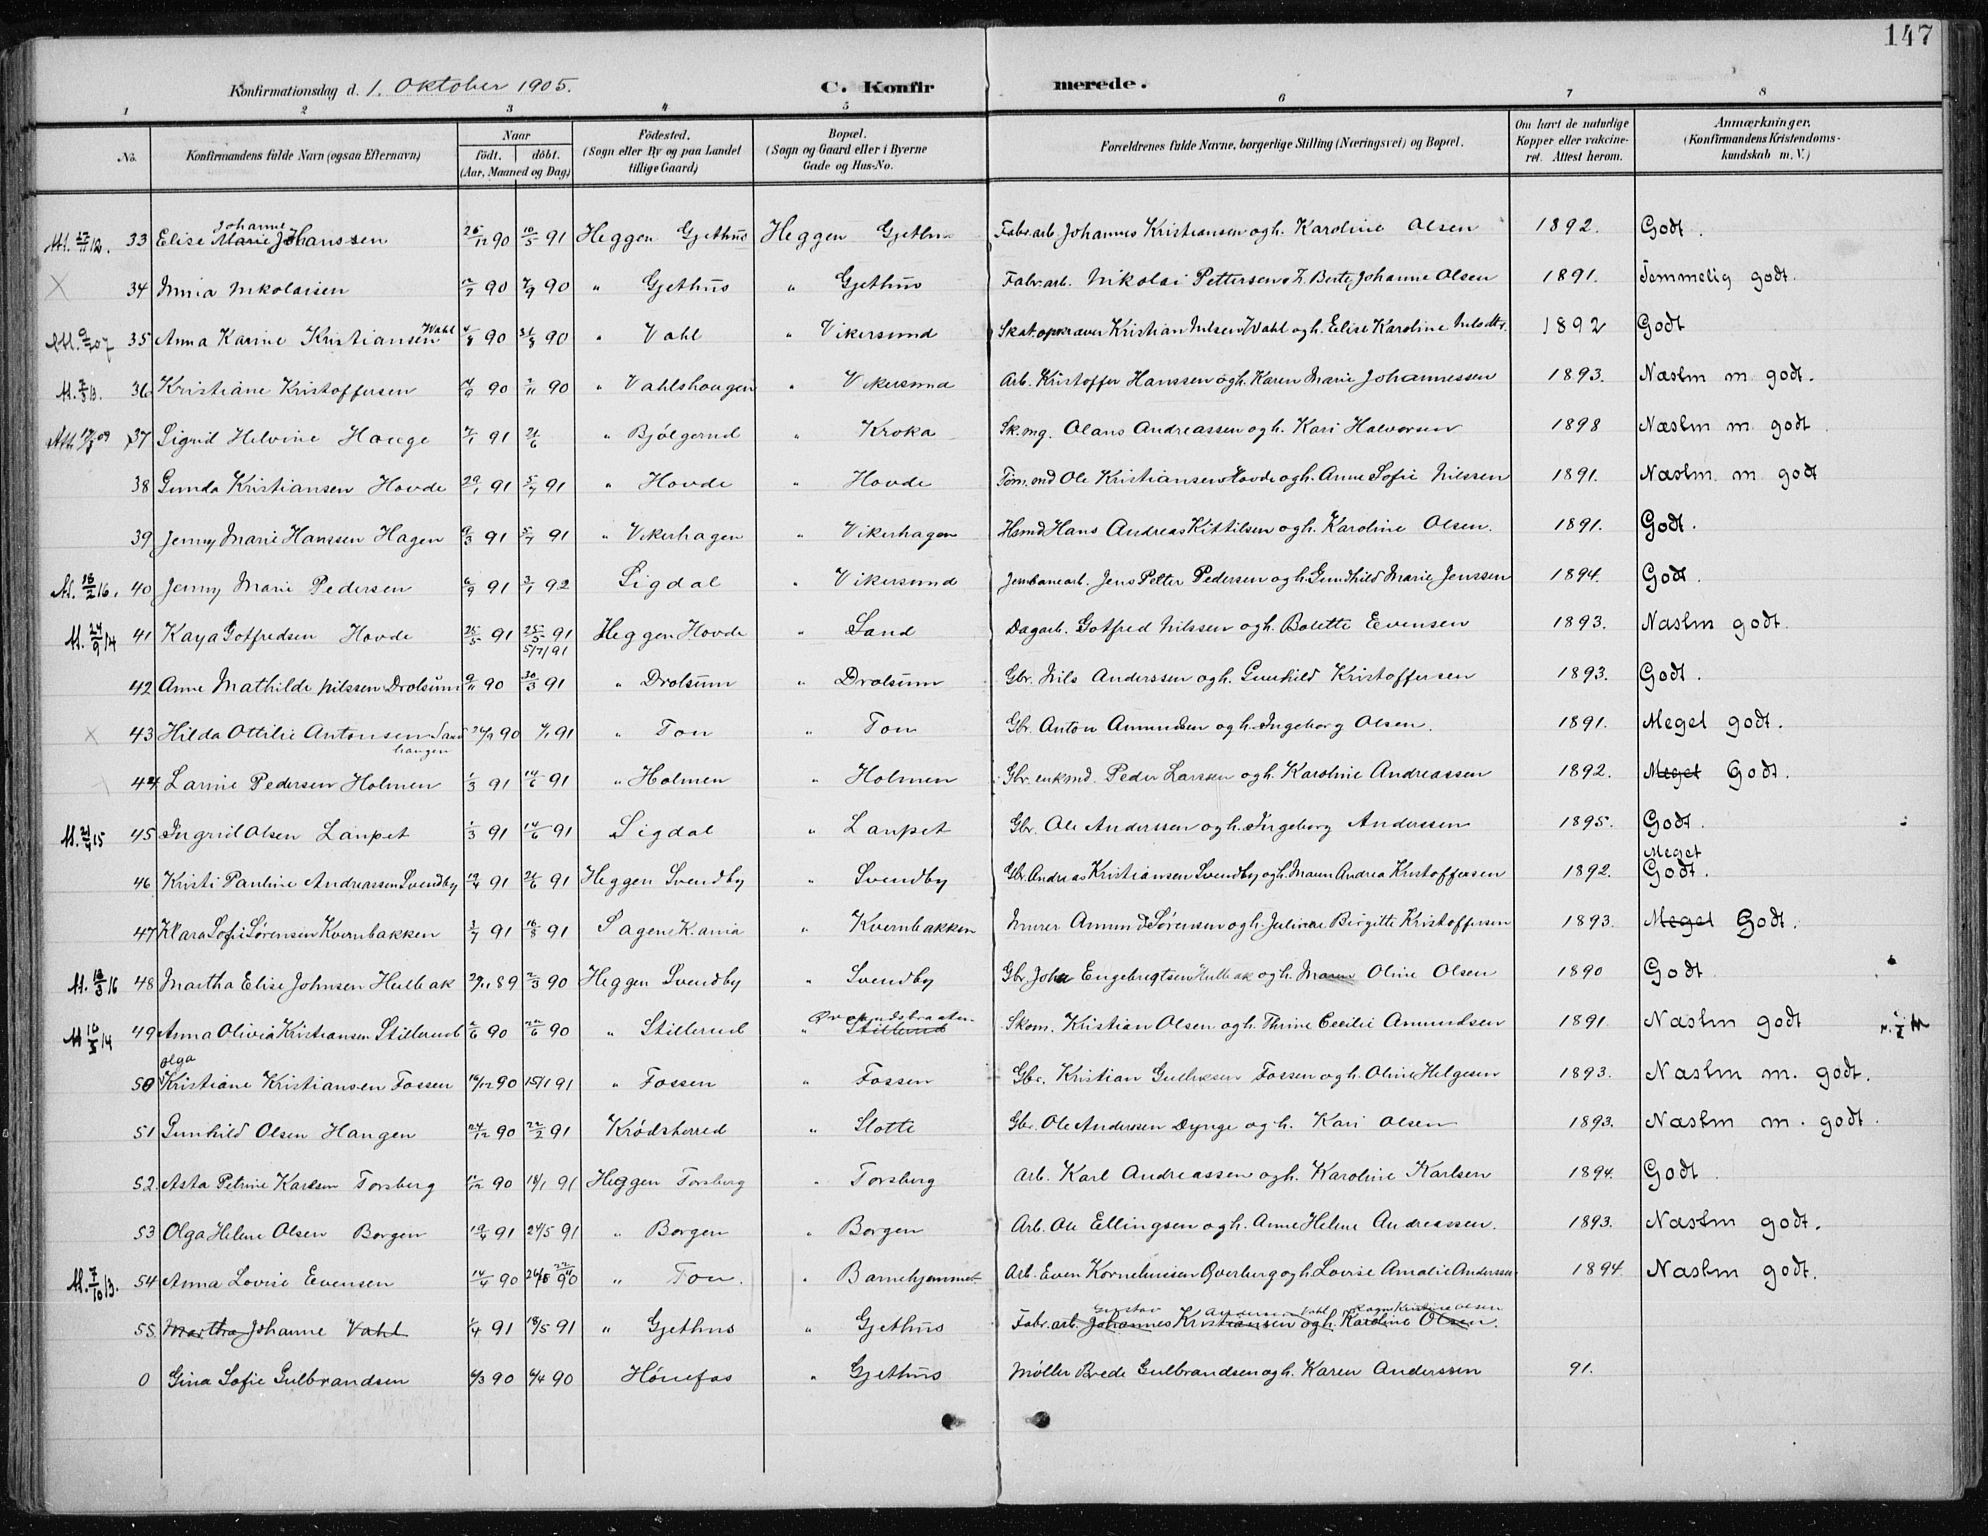 147
Konfirmationsdag d. 1. Oktober 1905.
C. Konfirmerede.
1 2 3 4 5 6 7 8
No. Konfirmandens fulde Navn (ogsaa Efternavn) Naar födt. döbt. (Aar, Maaned og Dag) Födested. (Sogn eller By og paa Landet tillige Gaard) Bopæl. (Sogn og Gaard eller i Byerne Gade og Hus-No. Forældrenes fulde Navne, borgerlige Stilling (Næringsvei) og Bopæl. Om havt de naturlige Kopper eller vakcineret. Attest herom. Anmærkninger. (Konfirmandens Kristendomskundskab m. V.)
33 Elise Johanne Marie Johanssen 26/12 90 10/5 91 Heggen Gjethus Heggen Gjethus Fabr.arb. Johannes Kristiansen og h. Karoline Olsen 1892. Godt.
34 Innia Nikolaisen 90 7/9 90 " Gjethus " Gjethus Fabr.arb. Nikolai Pettersen o. h. Berte Johanne Olsen 1891. Temmelig godt.
35 Anna Karine Kristiansen Wahl 90 31/8 90 " Vahl " Vikersund Skat.opkræver Kristian Nilsen Wahl og h. Elise Karoline Nilsdtr. 1892 Godt
36 Kristiane Kristoffersen 90 2/11 90 " Vahlshougen " Vikersund Arb. Kristoffer Hanssen og h. Karen Marie Johannessen 1893. Næstm m. godt.
37 Sigrid Helvine Hauge 91 21/6 " Bjölgerud " Kroka Sk.mg. Olaus Andreassen og h. Kari Halvorsen 1898 Næstm m. godt.
38 Gunda Kristiansen Hovde 29/1 91 5/7 91 " Hovde " Hovde Töm.md Ole Kristiansen Hovde og h. Anne Sofie Nilssen 1891. Næstm. m. godt
39 Jenny Marie Hanssen Hagen 9/3 91 5/7 91 " Vikerhagen " Vikerhagen Hsmd Hans Andreas Kittilsen og h. Karoline Olsen. 1891. Godt.
40 Jenny Marie Pedersen 6/9 91 3/1 92 Sigdal " Vikersund Jernbanearb. Jens Petter Pedersen og h. Gundhild Marie Jenssen 1894. Godt.
41 Kaya Gotfredsen Hovde 25/5 91 25/5 91 5/7/91 Heggen Hovde " Sand Dagarb. Gotfred Nilssen og h. Bolette Evensen 1893. Næstm godt.
42 Anne Mathilde Nilssen Drolsum 9/11 90 30/3 91 " Drolsum " Drolsum Gbr. Nils Anderssen og h. Gunhild Kristoffersen 1893. Godt.
43 Hilda Ottilie Antonsen 90 91 " Ton " Ton Gbr. Anton Amundsen og h. Ingeborg Olsen. 1891. Meget godt.
44 Larine Pedersen Holmen 1/3 91 14/6 91 " Holmen " Holmen Gbr. enkmd. Peder Larssen og h. Karoline Andreassen 1892. Meget Godt.
45 Ingrid Olsen Laupet 1/3 91 14/6 91 Sigdal " Laupet Gbr. Ole Anderssen og h. Ingeborg Anderssen 1895. Godt.
46 Kristi Pauline Andreassen Svendby 19/4 91 21/6 91 Heggen Svendby " Svendby Gbr. Andreas Kristiansen Svendby og h. Maren Andrea Kristoffersen 1892. Meget Godt.
47 Klara Sofie Sörensen Kvernbakken 3/7 91 16/8 91 Sagene K.ania " Kvernbakken Murer Amund Sörensen og h. Juliane Birgitte Kristoffersen 1893. Meget Godt.
48 Martha Elise Johnsen Hulbak 29/11 89 2/3 90 Heggen Svendby " Svendby Gbr. John Engebrigtsen Hulbak og h. Maren Oline Olsen 1890 Godt
49 Anna Olivia Kristiansen Stillerud 2/6 90 22/6 90 " Stillerud " Stillerud Skom. Kristian Olsen og h. Thrine Cecilie Amundsen 1891. Næstm godt
50 Olga Kristiane Kristiansen Fossen 16/12 90 15/1 91 " Fossen " Fossen Gbr. Kristian Gulliksen Fossen og h. Oline Helgesen 1893. Næstm m. godt.
51 Gunhild Olsen Haugen 24/12 90 22/2 91 Krödsherred " Slotte Gbr. Ole Andersen Dynge og h. Kari Olsen 1893. Næstm m. godt.
52. Asta Petrine Karlsen Forsberg 90 18/1 91 Heggen Forsberg " Forsberg Arb. Karl Andreassen og h. Karoline Karlsen 1894. Godt.
53 Olga Helene Olsen Borgen 19/4 91 24/5 91 " Borgen " Borgen Arb. Ole Ellingsen og h. Anne Helene Andreassen. 1893. Næstm godt.
54 Anna Lovise Evensen 14/4 90 90 " Ton. " Barnehjemmet Arb. Even Korneliussen Överberg og h. Lovise Amalie Anderssen 1894 Næstm godt.
55. Martha Johanne Vahl 1/4 91 18/5 91 " Gjethus " Gjethus Fabr.arb. Johannes Kristiansen og h. Karoline Olsen. Gustav Andersen Vahl Ragna Kristine Olsen
0 Gina Sofie Gulbrandsen 6/3 90 6/4 90 Hönefos " Gjethus Möller Brede Gulbrandsen og h. Karen Anderssen 91.